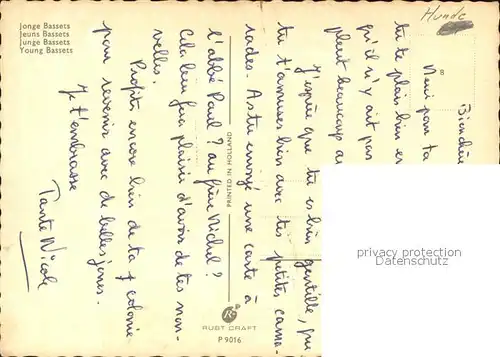 Jonge Bassets
Jeuns Bassets
Junge Bassets
Young Bassets
Hunde
8
Merci pour ta
tu te plais bien en
qu'il n'y ait pas
pleut beaucoup
J'espère que tu es bien gentille, que
tu t'amuses bien avec tes petites cama-
rades. As-tu envoyé une carte à
l'abbé Paul? au frère Michel?
Cela leur fera plaisir d'avoir de tes nou-
velles.
Profite encore bien de ta colonie
pour revenir avec de belles joues.
Je t'embrasse
Tante Nicole
PRINTED IN HOLLAND
RUST CRAFT
P 9016
privacy protection
Datenschutz